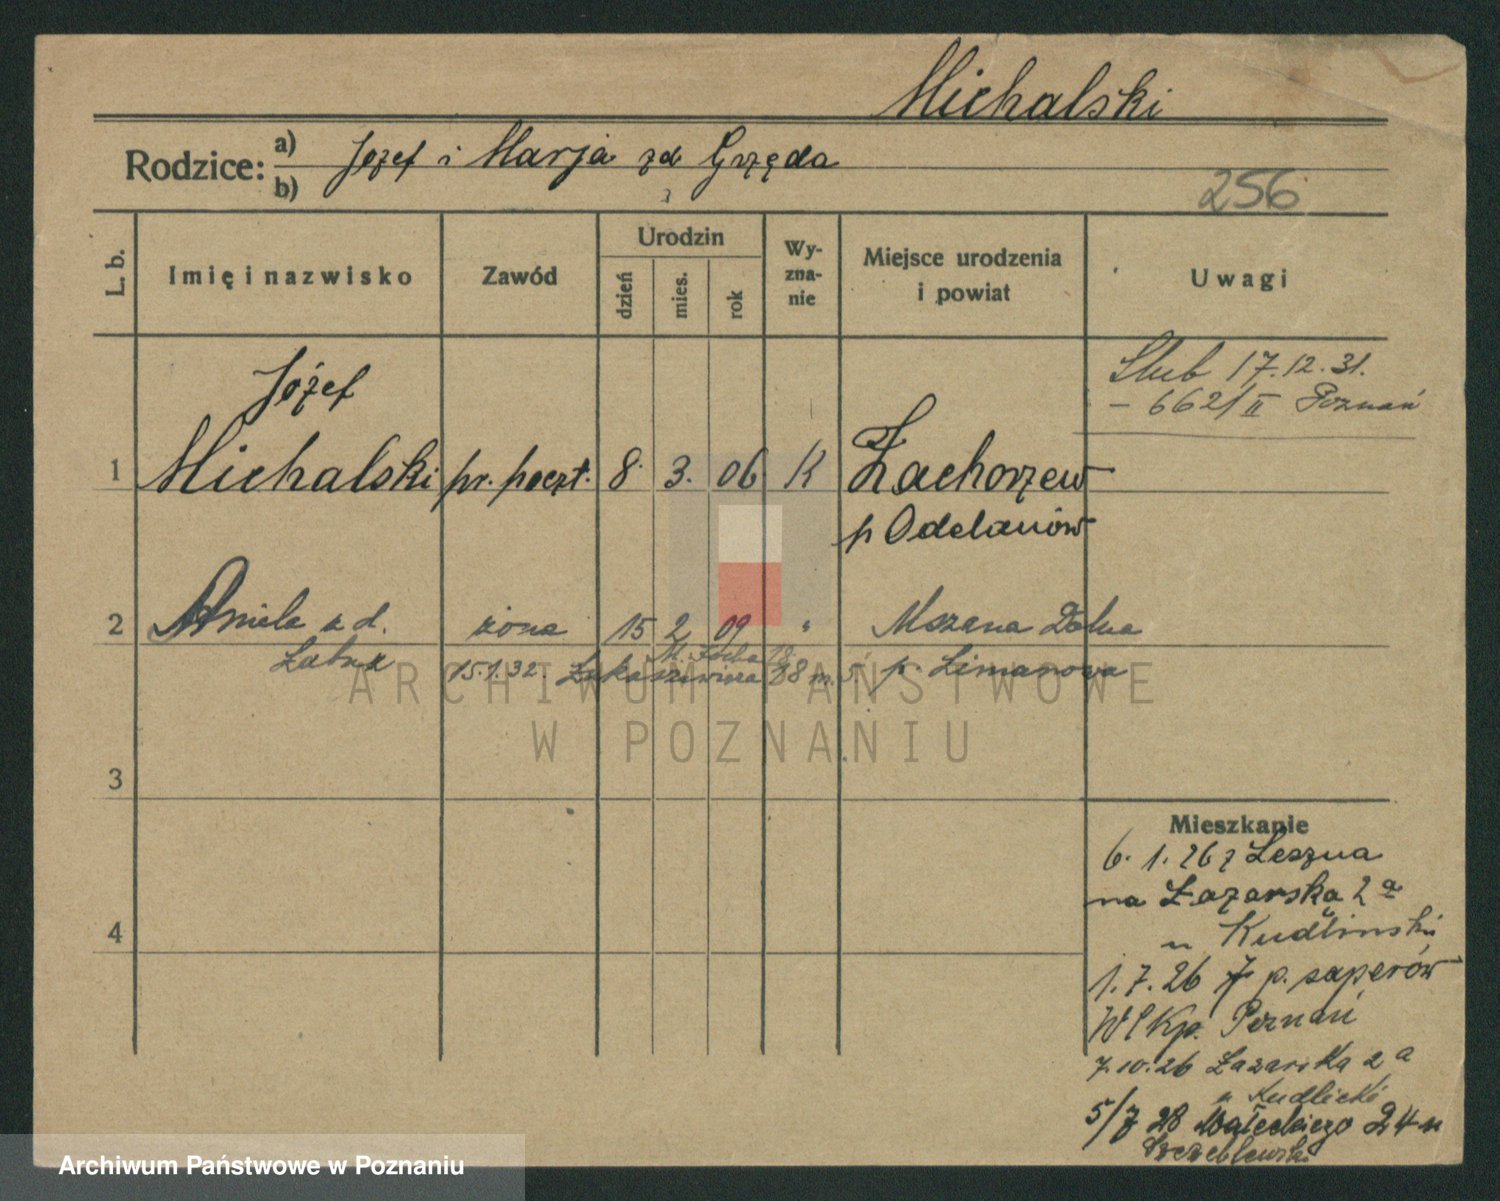 Michalski
Rodzice: a) Józef i Marja zd Grzęda
b)
256
L. b.
Imię i nazwisko
Zawód
Urodzin
dzień
mies.
rok
Wy-
zna-
nie
Miejsce urodzenia
i powiat
Uwagi
Ślub 17.12.31.
– 662/II Poznań
Józef
1 Michalski pr. poczt. 8. 3. 06 K Zachorzew
p Odolanów
2 Aniela z d. żona 15 2 09 " Mszana Dolna
M. Focha
15.1.32. Łukaszewicza m. 5 p. Limanowa
3
4
Mieszkanie
6. 1. 26 z Leszna
na Łazarską 2a
u Kudlinski
1. 7. 26 7 p. saperów
Wlkp. Poznań
7.10.26 Łazarska 2a
u Kudlicki
5/7 28 Małeckiego 24 u
ARCHIWUM PAŃSTWOWE
W POZNANIU
Archiwum Państwowe w Poznaniu